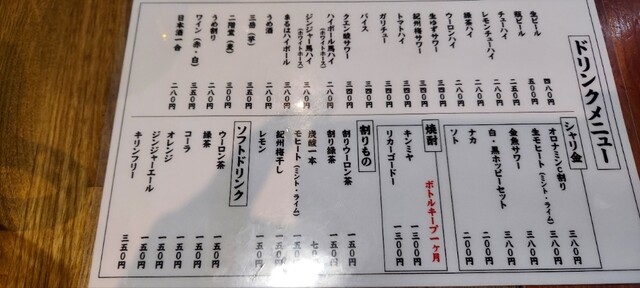 ドリンクメニュー
生ビール 四八〇円
瓶ビール 五五〇円
チューハイ 二五〇円
レモンチューハイ 二八〇円
緑茶ハイ 二八〇円
ウーロンハイ 二八〇円
生ゆずサワー 三四〇円
紀州梅サワー 三四〇円
トマトハイ 三四〇円
ガリチュー 三四〇円
バイス 三四〇円
クエン酸サワー 三四〇円
ハイボール馬ハイ
(ホワイトホース) 二八〇円
ジンジャー馬ハイ
(ホワイトホース) 三八〇円
まるはハイボール 三八〇円
うめ酒 二八〇円
三岳(芋) 三五〇円
二階堂(麦) 三〇〇円
うめ割り 二八〇円
ワイン(赤・白)
日本酒一合 二八〇円
シャリ金
オロナミンC割り 三八〇円
生モヒート(ミント・ライム) 三八〇円
金魚サワー 三八〇円
白・黒ホッピーセット 三八〇円
ナカ 二〇〇円
ソト 二〇〇円
焼酎 ボトルキープ一ヶ月
キンミヤ 一三〇〇円
リカーゴードー 一三〇〇円
割りもの
割りウーロン茶 一五〇円
割り緑茶 一五〇円
炭酸一本
モヒート(ミント・ライム) 一五〇円
紀州梅干し 一五〇円
レモン 一五〇円
ソフトドリンク
ウーロン茶 一五〇円
緑茶 一五〇円
コーラ 一五〇円
オレンジ 一五〇円
ジンジャーエール 一五〇円
キリンフリー 三五〇円